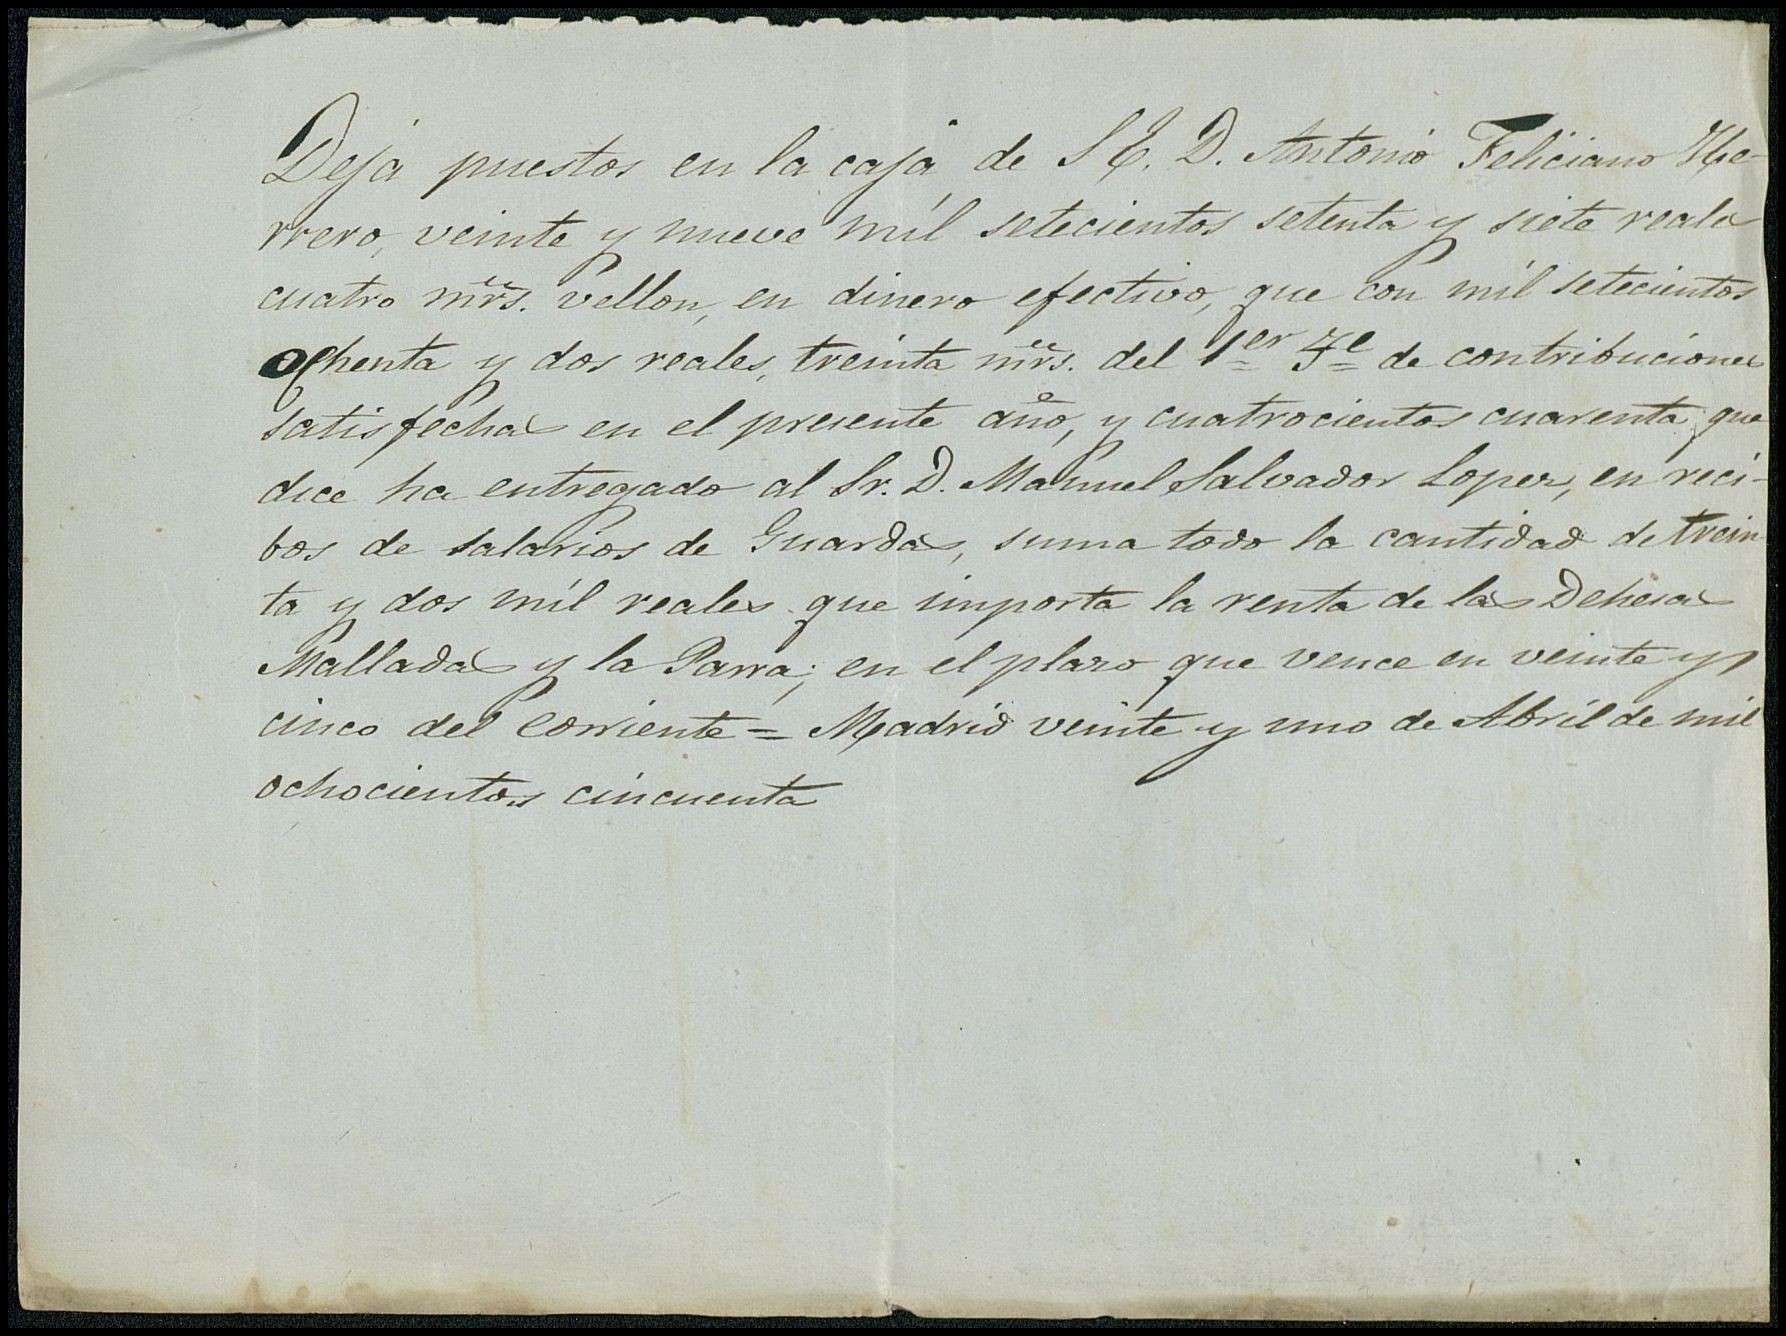 Deja puestos en la caja de S E. D. Antonio Feliciano He-
rrero, veinte y nueve mil setecientos setenta y siete reales
cuatro mrs. vellon, en dinero efectivo, que con mil setecientos
ochenta y dos reales, treinta mrs. del 1er Te de contribuciones
satisfechas en el presente año, y cuatrocientos cuarenta que
dice ha entregado al Sr. D. Manuel Salvador Lopez, en reci-
bos de salarios de Guardas, suma todo la cantidad de trein-
ta y dos mil reales que importa la renta de las Dehesas
Malladas y la Parra; en el plazo que vence en veinte y
cinco del corriente = Madrid veinte y uno de Abril de mil
ochocientos cincuenta